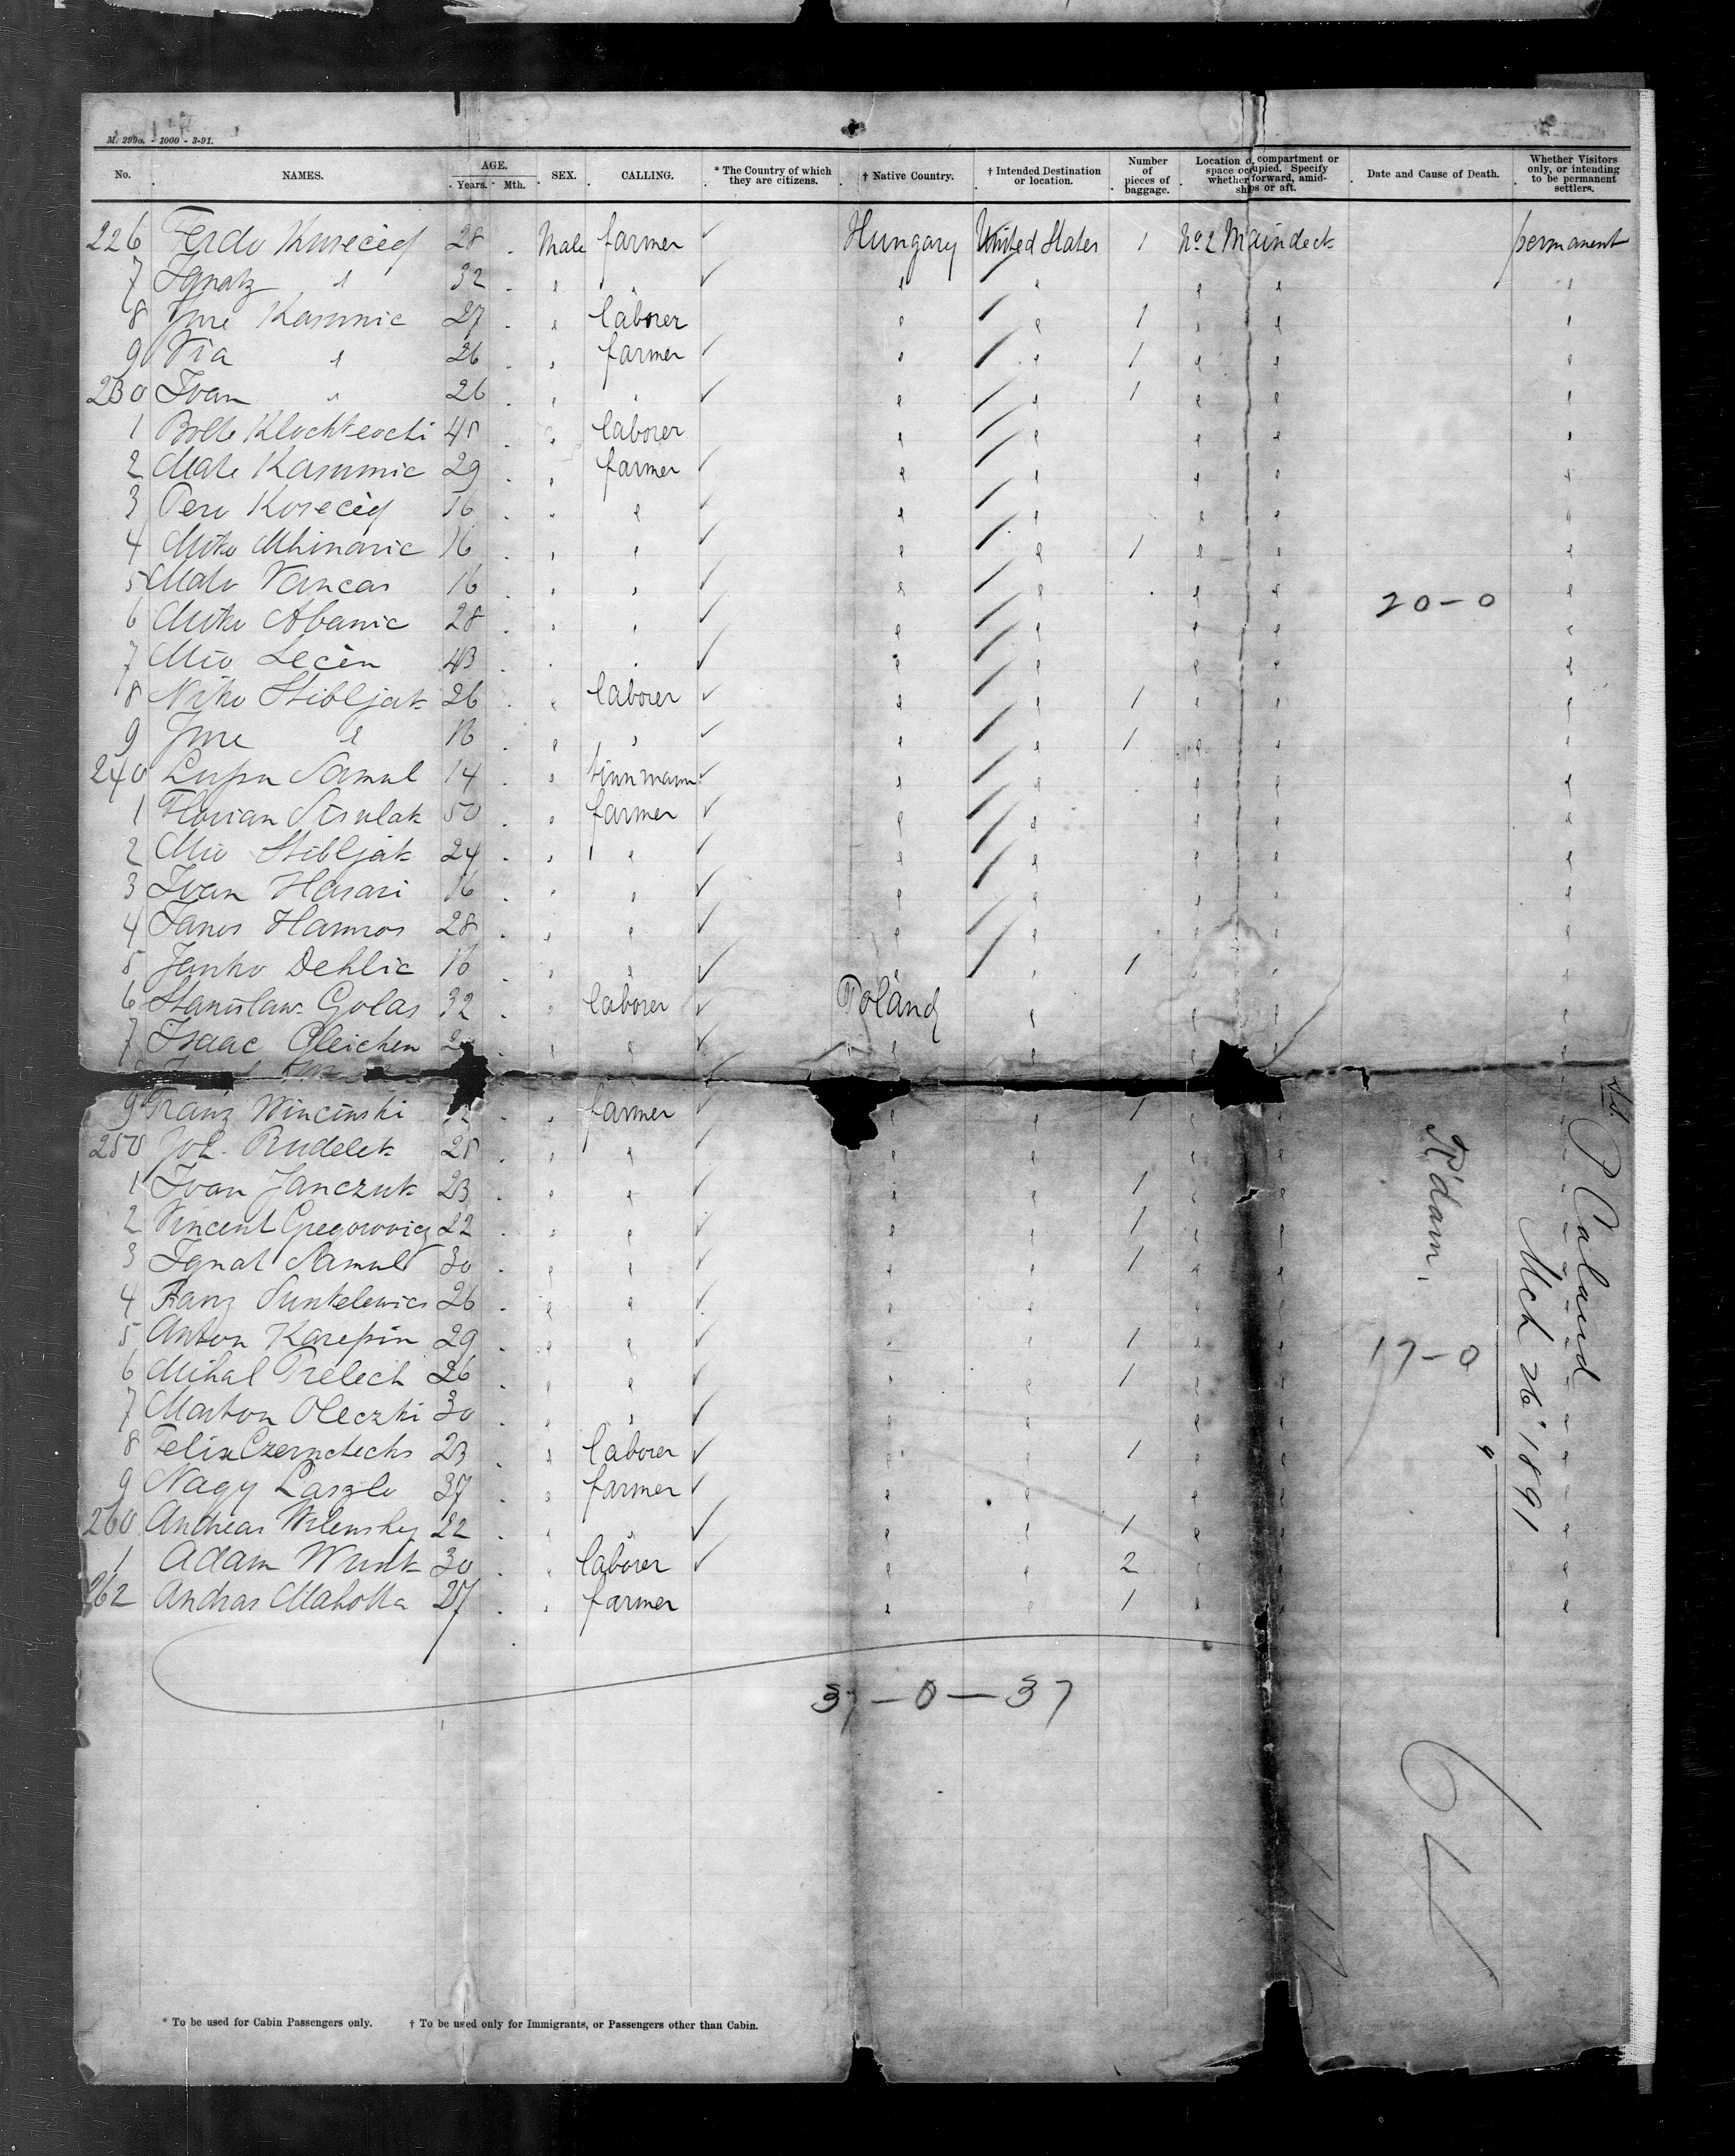 M. 299a. - 1000 - 3-91.
No. NAMES. AGE. Years. Mth. SEX. CALLING. * The Country of which they are citizens. † Native Country. † Intended Destination or location. Number of pieces of baggage. Location of compartment or space occupied. Specify whether forward, amidships or aft. Date and Cause of Death. Whether Visitors only, or intending to be permanent settlers.
226 Ferdo Kurecies 28 Male farmer ✓ Hungary United States 1 No 2 Maindeck permanent
7 Ignatz " 32 " " ✓ " " " " "
8 Jure Kasumic 27 " laborer " " 1 " " "
9 Via " 26 " farmer ✓ " " 1 " " "
230 Ivan " 26 " " ✓ " " 1 " " "
1 48 " laborer " " " " "
2 Mate Kasumic 29 " farmer ✓ " " " " "
3 Pero 16 " " ✓ " " " " "
4 Miko Mhinaric 16 " " ✓ " " 1 " " "
5 Mato Vancas 16 " " ✓ " " " " "
20-0
6 Miko Abanic 28 " " ✓ " " " " "
7 Mio Lecin 43 " " ✓ " " " " "
8 Niko Stibljak 26 " laborer ✓ " " 1 " " "
9 Jure " 16 " " ✓ " " 1 " " "
240 Lupu Samul 14 " tinnmann ✓ " " " " "
1 Florian 50 " farmer ✓ " " " " "
2 Mio Stibljak 24 " " ✓ " " " " "
3 Ivan Harari 16 " " ✓ " " " " "
4 Janos Hamros 28 " " ✓ " " " " "
5 Janko Dehlic 16 " " ✓ " " 1 " " "
6 Stanislaw Golas 32 " laborer ✓ Poland " " " "
7 Isaac Gleichen " " ✓ " " " " "
9 Franz Wincinski " farmer ✓ " " 1 " " "
250 Joh. Rudelek 28 " " ✓ " " " " "
1 Ivan Janczuk 23 " " ✓ " " 1 " " "
2 Vincent Gregorowicz 22 " " ✓ " " 1 " " "
3 Ignat Samul 30 " " ✓ " " 1 " " "
4 Franz Suntelewics 26 " " ✓ " " " " "
5 Anton Karepin 29 " " ✓ " " 1 " " "
17-0
6 Mihal Trelech 26 " " ✓ " " 1 " " "
7 Marton Oleczki 30 " " ✓ " " " " "
8 Felix 23 " laborer ✓ " " 1 " " "
9 Nagy Laszlo 37 " farmer ✓ " " " " "
260 Andreas Wilensky 22 " " ✓ " " 1 " " "
1 Adam Wunk 30 " laborer ✓ " " 2 " " "
262 Andras Mahotta 27 " farmer " " 1 " " "
37-0-37
SS P Caland
R'dam.
Mch 26 '1891
* To be used for Cabin Passengers only. † To be used only for Immigrants, or Passengers other than Cabin.